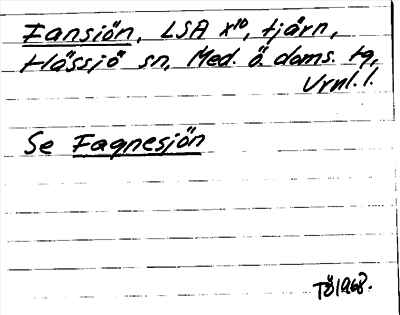 Fansjön, LSA x¹⁰, tjärn,
Hässjö sn, Med. ö. doms. tg,
Vrnl. l.
Se Fagnesjön
TÖ 1968.